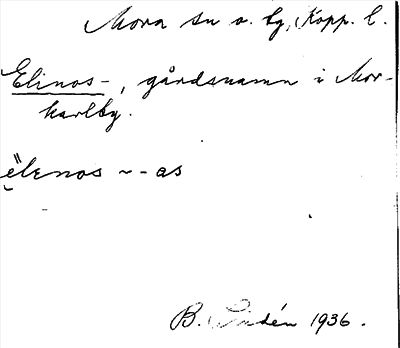 Mora sn o. by, Kopp. l.
Elinos-, gårdsnamn i Mor-
karlby.
elenos ~ - as
B. Lindén 1936.